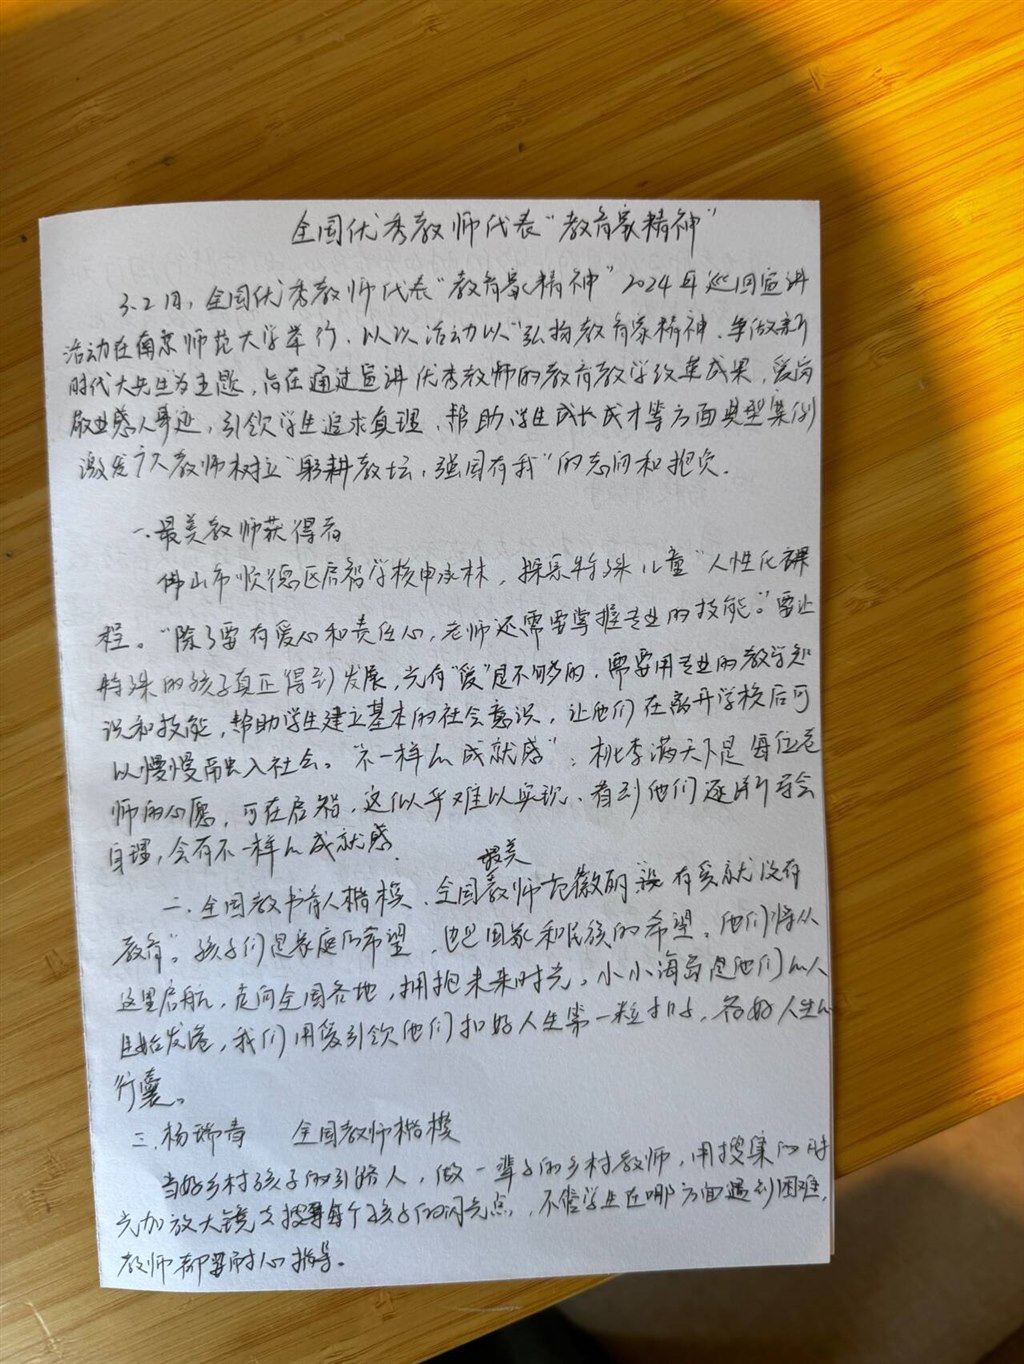 全国优秀教师代表“教育家精神”
3.2日，全国优秀教师代表“教育家精神”2024年巡回宣讲
活动在南京师范大学举行，以次活动以“弘扬教育家精神、争做新
时代大先生”为主题，旨在通过宣讲优秀教师的教育教学改革成果，爱岗
敬业感人事迹，引领学生追求真理，帮助学生成长成才等方面典型案例
激发广大教师树立“躬耕教坛，强国有我”的志向和抱负.
一、最美教师获得者
佛山市顺德区启智学校申承林，探索特殊儿童“人性化课
程。“除了需有爱心和责任心，老师还需要掌握专业的技能。”要让
特殊的孩子真正得到发展，光有“爱”是不够的，需要用专业的教学知
识和技能，帮助学生建立基本的社会意识，让他们在离开学校后可
以慢慢融入社会。“不一样的成就感”：桃李满天下是每位老
师的心愿，可在启智，这似乎难以实现、看到他们逐渐学会
自理，会有不一样的成就感.
二.全国教书育人楷模、全国最美教师 没有爱就没有
教育”。孩子们是家庭的希望，也是国家和民族的希望，他们将从
这里启航，走向全国各地，拥抱未来时光。小小海岛是他们的人
生始发港，我们用爱引领他们扣好人生第一粒扣子，备好人生的
行囊。
三.杨瑞清 全国教师楷模
当好乡村孩子的引路人，做一辈子的乡村教师，用搜集的时
光加放大镜去搜寻每个孩子的闪光点，不管学生在哪方面遇到困难，
教师都要耐心指导。